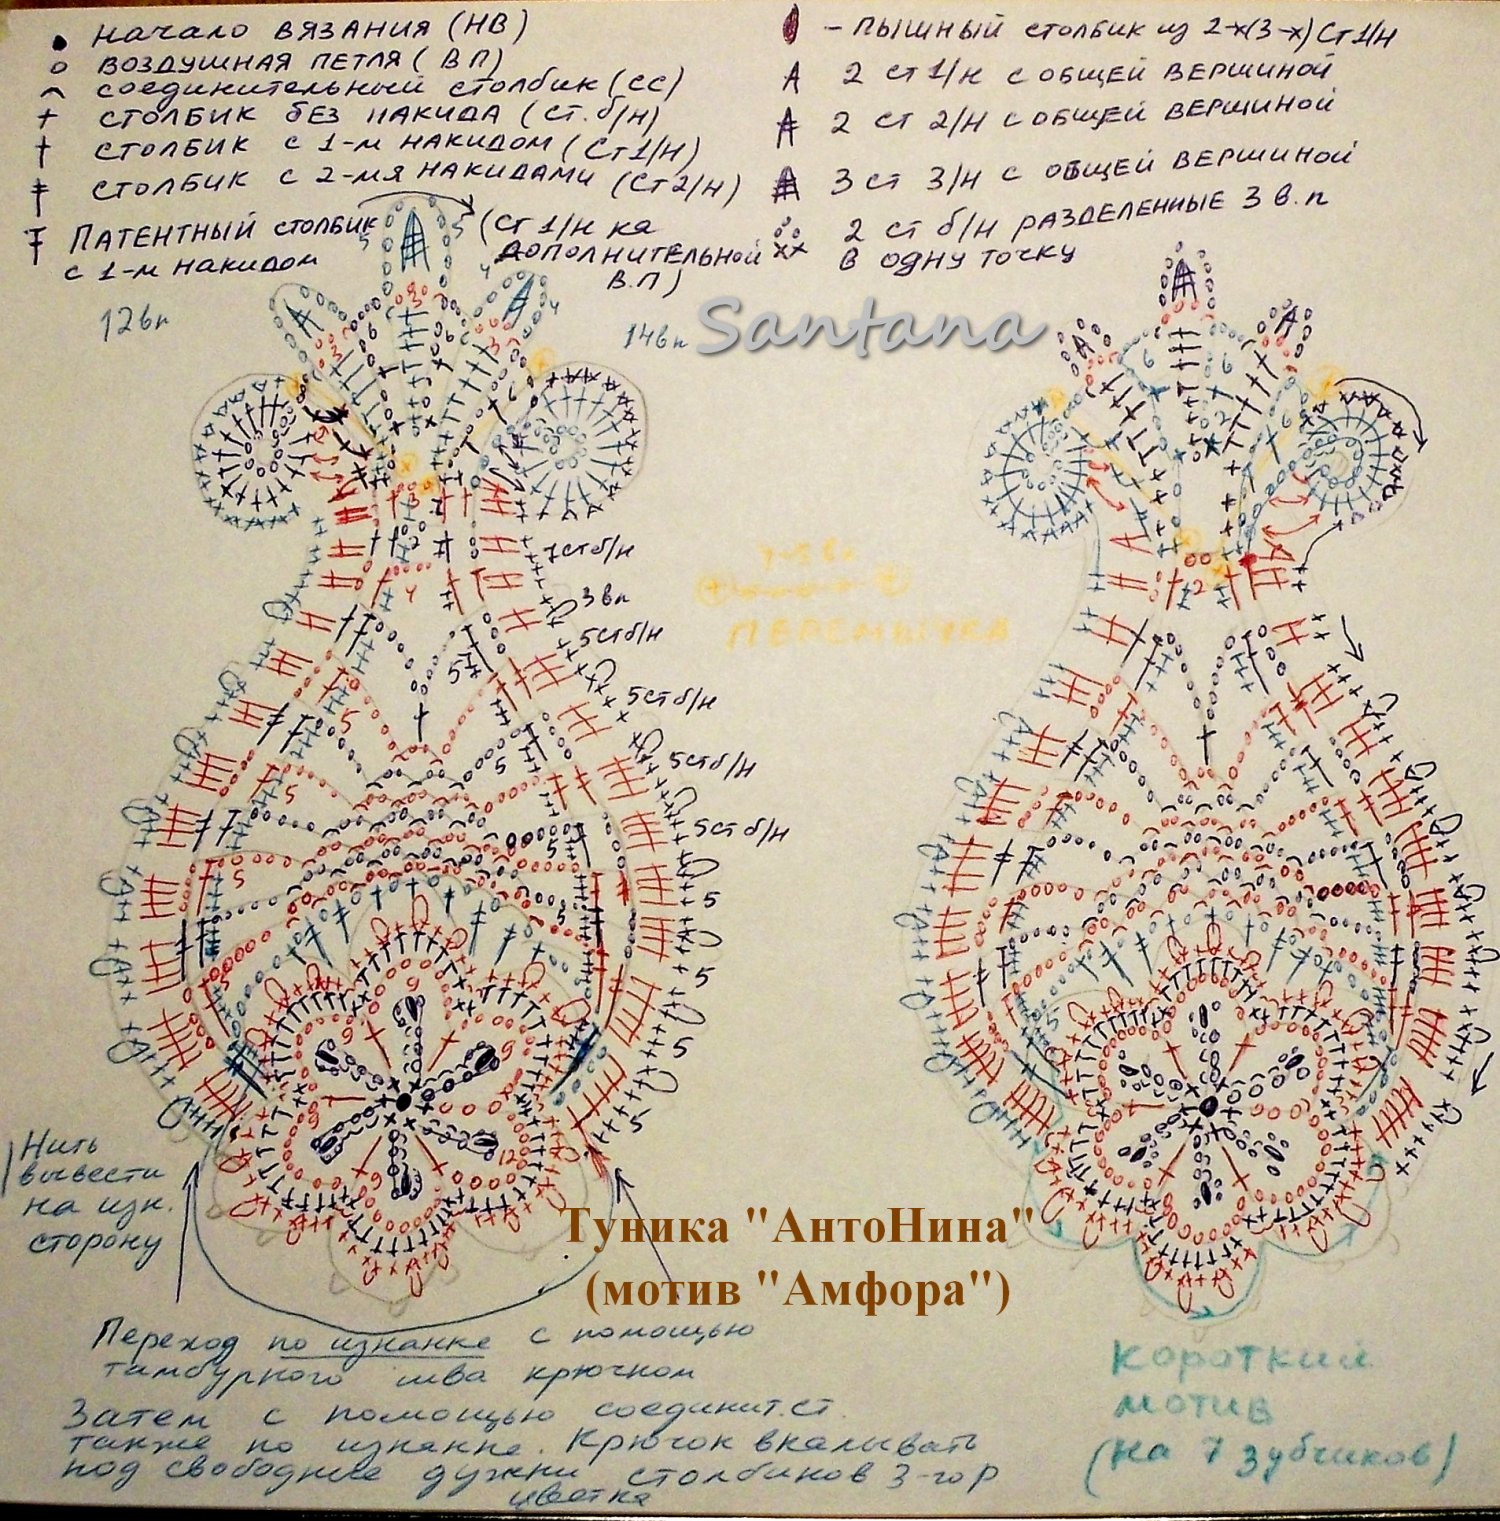 начало вязания (НВ)
воздушная петля (ВП)
соединительный столбик (сс)
столбик без накида (ст.б/н)
столбик с 1-м накидом (Ст1/н)
столбик с 2-мя накидами (Ст2/н)
Патентный столбик
с 1-м накидом
(Ст 1/н на
дополнительной
в.п)
- пышный столбик из 2-х(3-х) Ст1/н
2 ст 1/н с общей вершиной
2 ст 2/н с общей вершиной
3 ст 3/н с общей вершиной
2 ст б/н разделенные 3 в.п
в одну точку
12вп
14вп
Santana
7стб/н
3вп
5стб/н
5стб/н
5стб/н
5стб/н
5
5
5
5
перемычка
Нить
вывести
на изн.
сторону
Туника "АнтоНина"
(мотив "Амфора")
Переход по изнанке с помощью
тамбурного шва крючком
Затем с помощью соединит.ст.
также по изнанке. Крючок вкалывать
под свободные дужки столбиков 3-го р
цветка
короткий
мотив
(на 7 зубчиков)